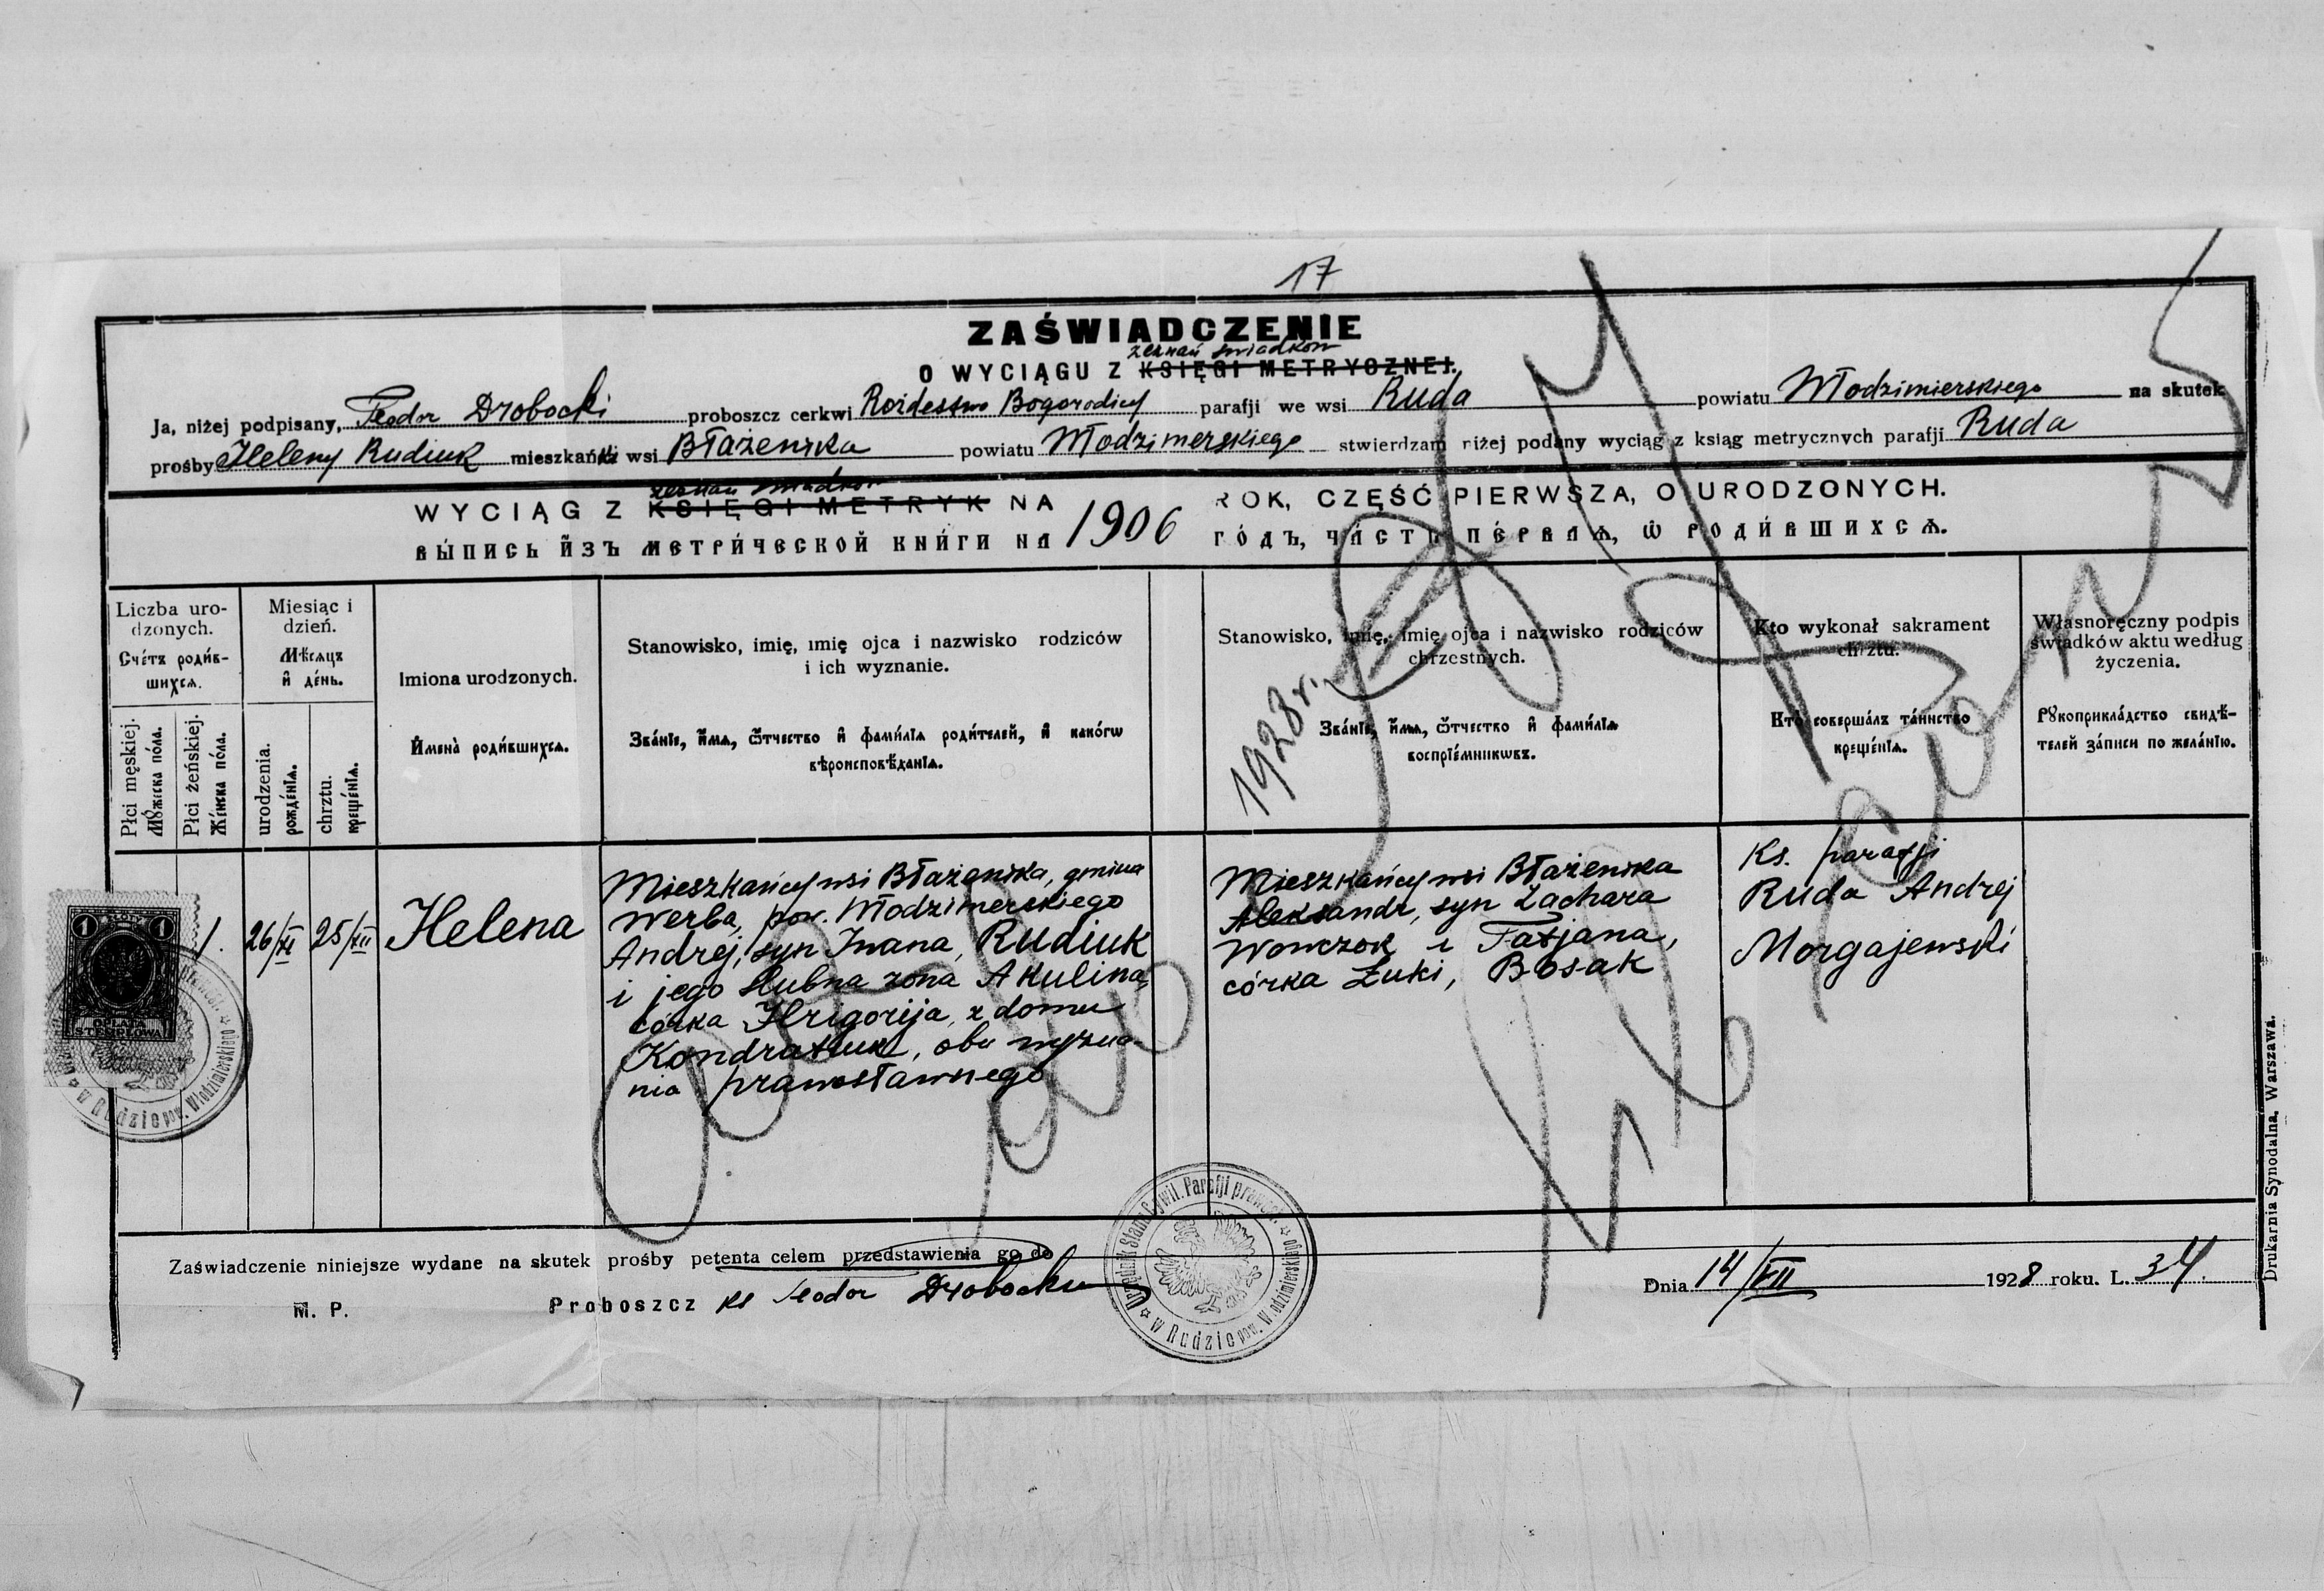 17
ZAŚWIADCZENIE
zeznań świadków
O WYCIĄGU Z KSIĘGI METRYCZNEJ.
Ja, niżej podpisany, Teodor Drobocki proboszcz cerkwi Rożdestwo Bogorodicy parafji we wsi Ruda powiatu Włodzimierskiego na skutek
prośby Heleny Rudiuk mieszkanki wsi Błażenika powiatu Włodzimerskiego stwierdzam niżej podany wyciąg z ksiąg metrycznych parafji Ruda
zeznań świadków
WYCIĄG Z KSIĘGI METRYK NA 1906 ROK, CZĘŚĆ PIERWSZA, O URODZONYCH.
ВЫ́ПИСЬ И҆ЗЪ МЕТРИ́ЧЕСКОЙ КНИ́ГИ НА ГО́ДЪ, ЧА́СТЬ ПЕ́РВАѦ, Ѡ҆ РОДИ́ВШИХСѦ.
Liczba uro-
dzonych.
Сче́тъ роди́в-
шихсѧ.
Płci męskiej.
Мꙋ́жеска по́ла.
Płci żeńskiej.
Же́нска по́ла.
Miesiąc i
dzień.
Мѣ́сѧцъ
и҆ де́нь.
urodzenia.
рожде́нїѧ.
chrztu.
креще́нїѧ.
Imiona urodzonych.
И҆мена̀ роди́вшихсѧ.
Stanowisko, imię, imię ojca i nazwisko rodziców
i ich wyznanie.
Зва́нїе, и҆́мѧ, ѻ҆́тчество и҆ фами́лїѧ роди́телей, и҆ како́гѡ
вѣроисповѣ́данїѧ.
Stanowisko, imię, imię ojca i nazwisko rodziców
chrzestnych.
Зва́нїе, и҆́мѧ, ѻ҆́тчество и҆ фами́лїѧ
воспрїе́мникѡвъ.
1928 r.
Kto wykonał sakrament
chrztu.
Кто̀ соверша́лъ та́инство
креще́нїѧ.
Własnoręczny podpis
świadków aktu według
życzenia.
Рꙋкоприкла́дство свидѣ́-
телей за́писи по жела́нїю.
1.
26/XI
25/XII
Helena
Mieszkańcy wsi Błażenika, gmina
Werba, pow. Włodzimerskiego
Andrej, syn Iwana, Rudiuk
i jego ślubna żona Akulina,
córka Hrigorija, z domu
Kondratiuk, obu wyzna-
nia prawosławnego
Mieszkańcy wsi Błażenika
Aleksandr, syn Zachara
Wowczok i Tatjana,
córka Łuki, Bosak
Ks. parafji
Ruda Andrej
Morgajewski
1 1
OPŁATA
STEMPLOWA
w Rudzie pow. Włodzimierskiego
Zaświadczenie niniejsze wydane na skutek prośby petenta celem przedstawienia go do
M. P.
Proboszcz ks Teodor Drobocki
Urzędnik Stanu Cywil. Parafji prawosł. w Rudzie pow. Włodzimierskiego
Dnia 14/XII 1928 roku. L. 34.
Drukarnia Synodalna, Warszawa.